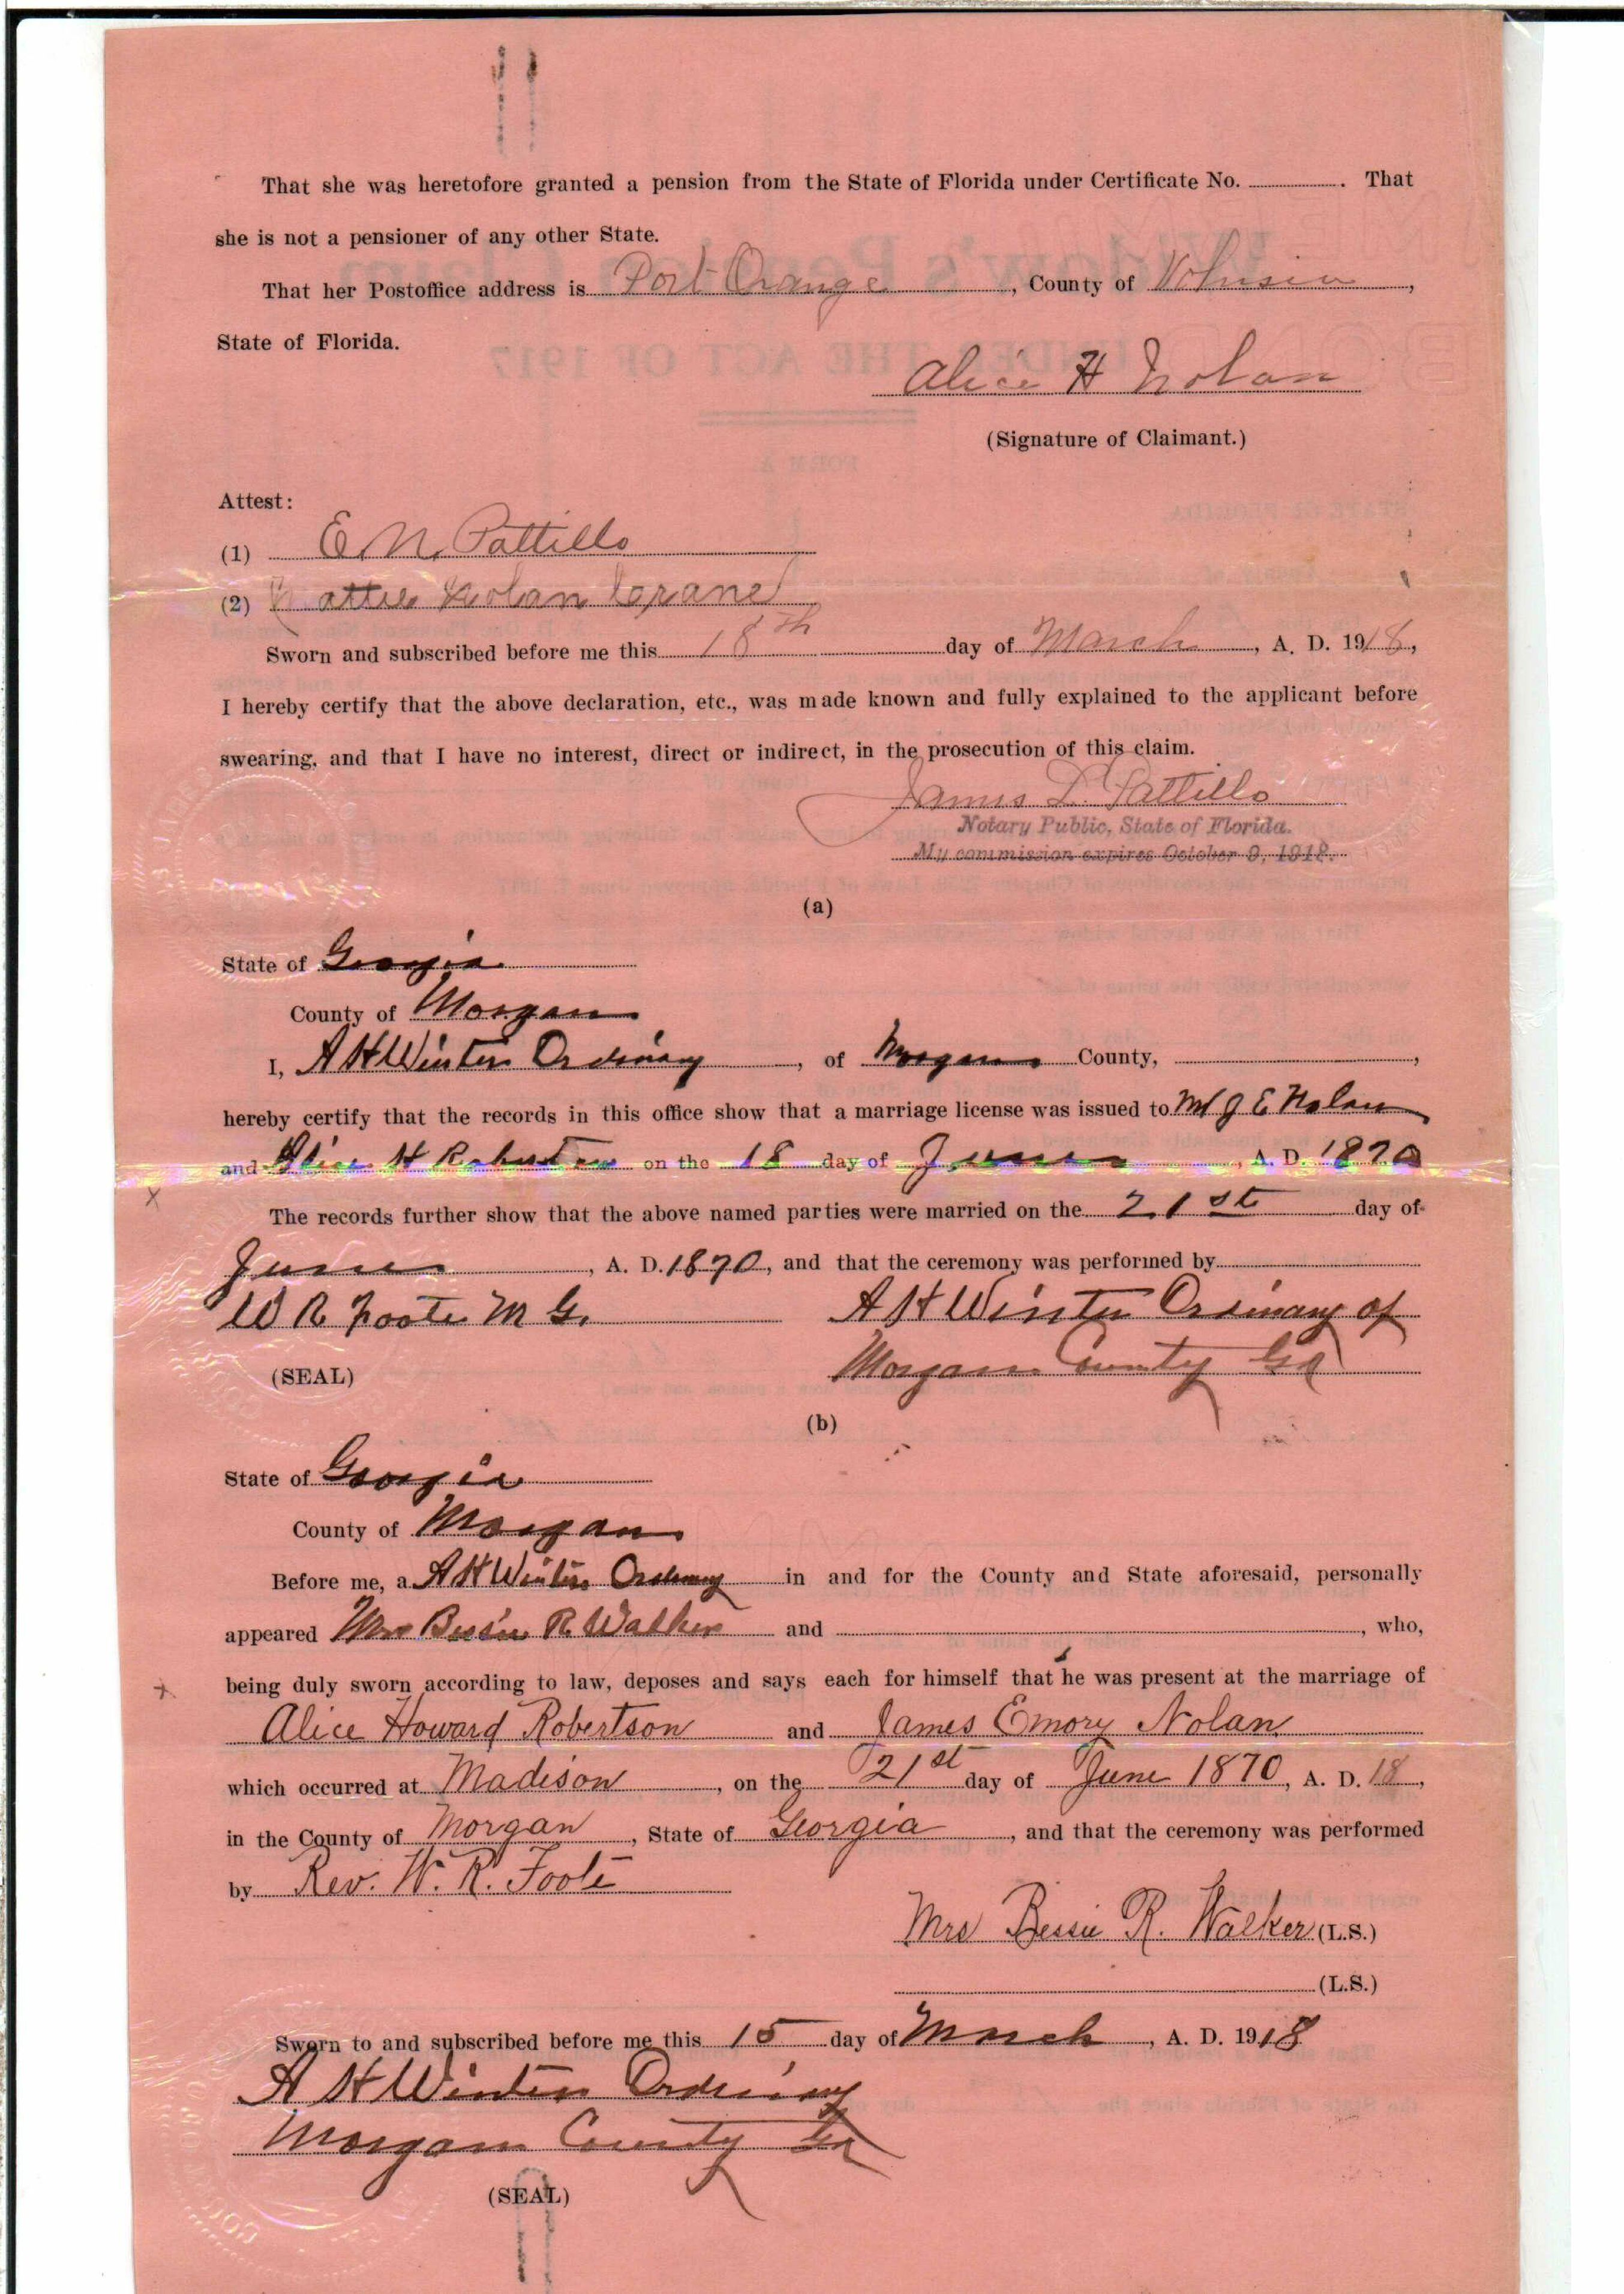 That she was heretofore granted a pension from the State of Florida under Certificate No. ............. That
she is not a pensioner of any other State.
That her Postoffice address is Port Orange, County of Volusia,
State of Florida.
Alice H Nolan
(Signature of Claimant.)
Attest:
(1) E. N. Pattillo
(2) Mattie Nolan Crane
Sworn and subscribed before me this 18th day of March, A. D. 1918,
I hereby certify that the above declaration, etc., was made known and fully explained to the applicant before
swearing, and that I have no interest, direct or indirect, in the prosecution of this claim.
James D. Pattillo
Notary Public, State of Florida.
My commission expires October 9, 1918.
(a)
State of Georgia
County of Morgan
I, A H Winter Ordinary, of Morgan County, ,
hereby certify that the records in this office show that a marriage license was issued to J E Nolan
and Alice H Robertson on the 18 day of June, A. D. 1870
The records further show that the above named parties were married on the 21st day of
June, A. D. 1870, and that the ceremony was performed by
W R Foote M G.
A H Winter Ordinary of
Morgan County Ga
(SEAL)
(b)
State of Georgia
County of Morgan
Before me, a A H Winter Ordinary in and for the County and State aforesaid, personally
appeared Mrs Bessie R. Walker and , who,
being duly sworn according to law, deposes and says each for himself that he was present at the marriage of
Alice Howard Robertson and James Emory Nolan
which occurred at Madison, on the 21st day of June 1870, A. D. 18,
in the County of Morgan, State of Georgia, and that the ceremony was performed
by Rev. W. R. Foote
Mrs Bessie R. Walker (L.S.)
(L.S.)
Sworn to and subscribed before me this 15 day of March, A. D. 1918
A H Winter Ordinary
Morgan County Ga
(SEAL)